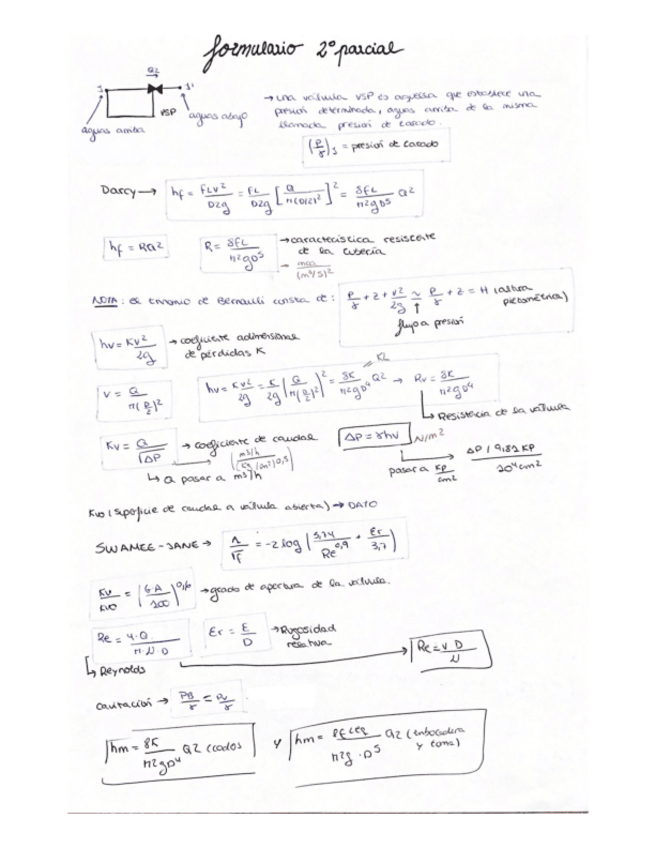 formulario 2º parcial
Q2
1 1'
VSP
aguas arriba aguas abajo
→ una válvula VSP es aquella que establece una
presión determinada, aguas arriba de la misma
llamada presión de tarado.
(P/γ)1 = presión de tarado
Darcy → hf = fLV²/D2g = fL/D2g [Q/π(D/2)²]² = 8fL/π²gD⁵ Q2
hf = RQ² R = 8fL/π²gD⁵ → característica resistente
de la tubería
- mca/(m³/s)²
NOTA: el trinomio de Bernoulli consta de: P/γ + z + v²/2g ≃ P/γ + z = H (altura
piezométrica)
↑ flujo a presión
hv = KV²/2g → coeficiente adimensional
de pérdidas K
V = Q/π(D/2)² hv = KV²/2g = K/2g (Q/π(D/2)²)² = 8K/π²gD⁴ Q2 → Rv = 8K/π²gD⁴
↳ Resistencia de la válvula
Kv = Q/√ΔP → coeficiente de caudal ΔP = γhv N/m²
m³/h/(Kg/cm²)0,5
↳ Q pasar a m³/h
pasar a KP/cm² ΔP / 9,81 KP/10⁴cm²
SWAMEE-JANE → 1/√f = -2 log (5,74/Re^0,9 + Er/3,7)
→ grado de apertura de la válvula.
Re = 4·Q/π·ν·D Er = E/D → Rugosidad
relativa
↳ Reynolds Re = V D/ν
cavitación → PB/γ = Pv/γ
hm = 8K/π²gD⁴ Q2 (codos) y hm = 8fLeq/π²g·D⁵ Q2 (embocadura
y toma)